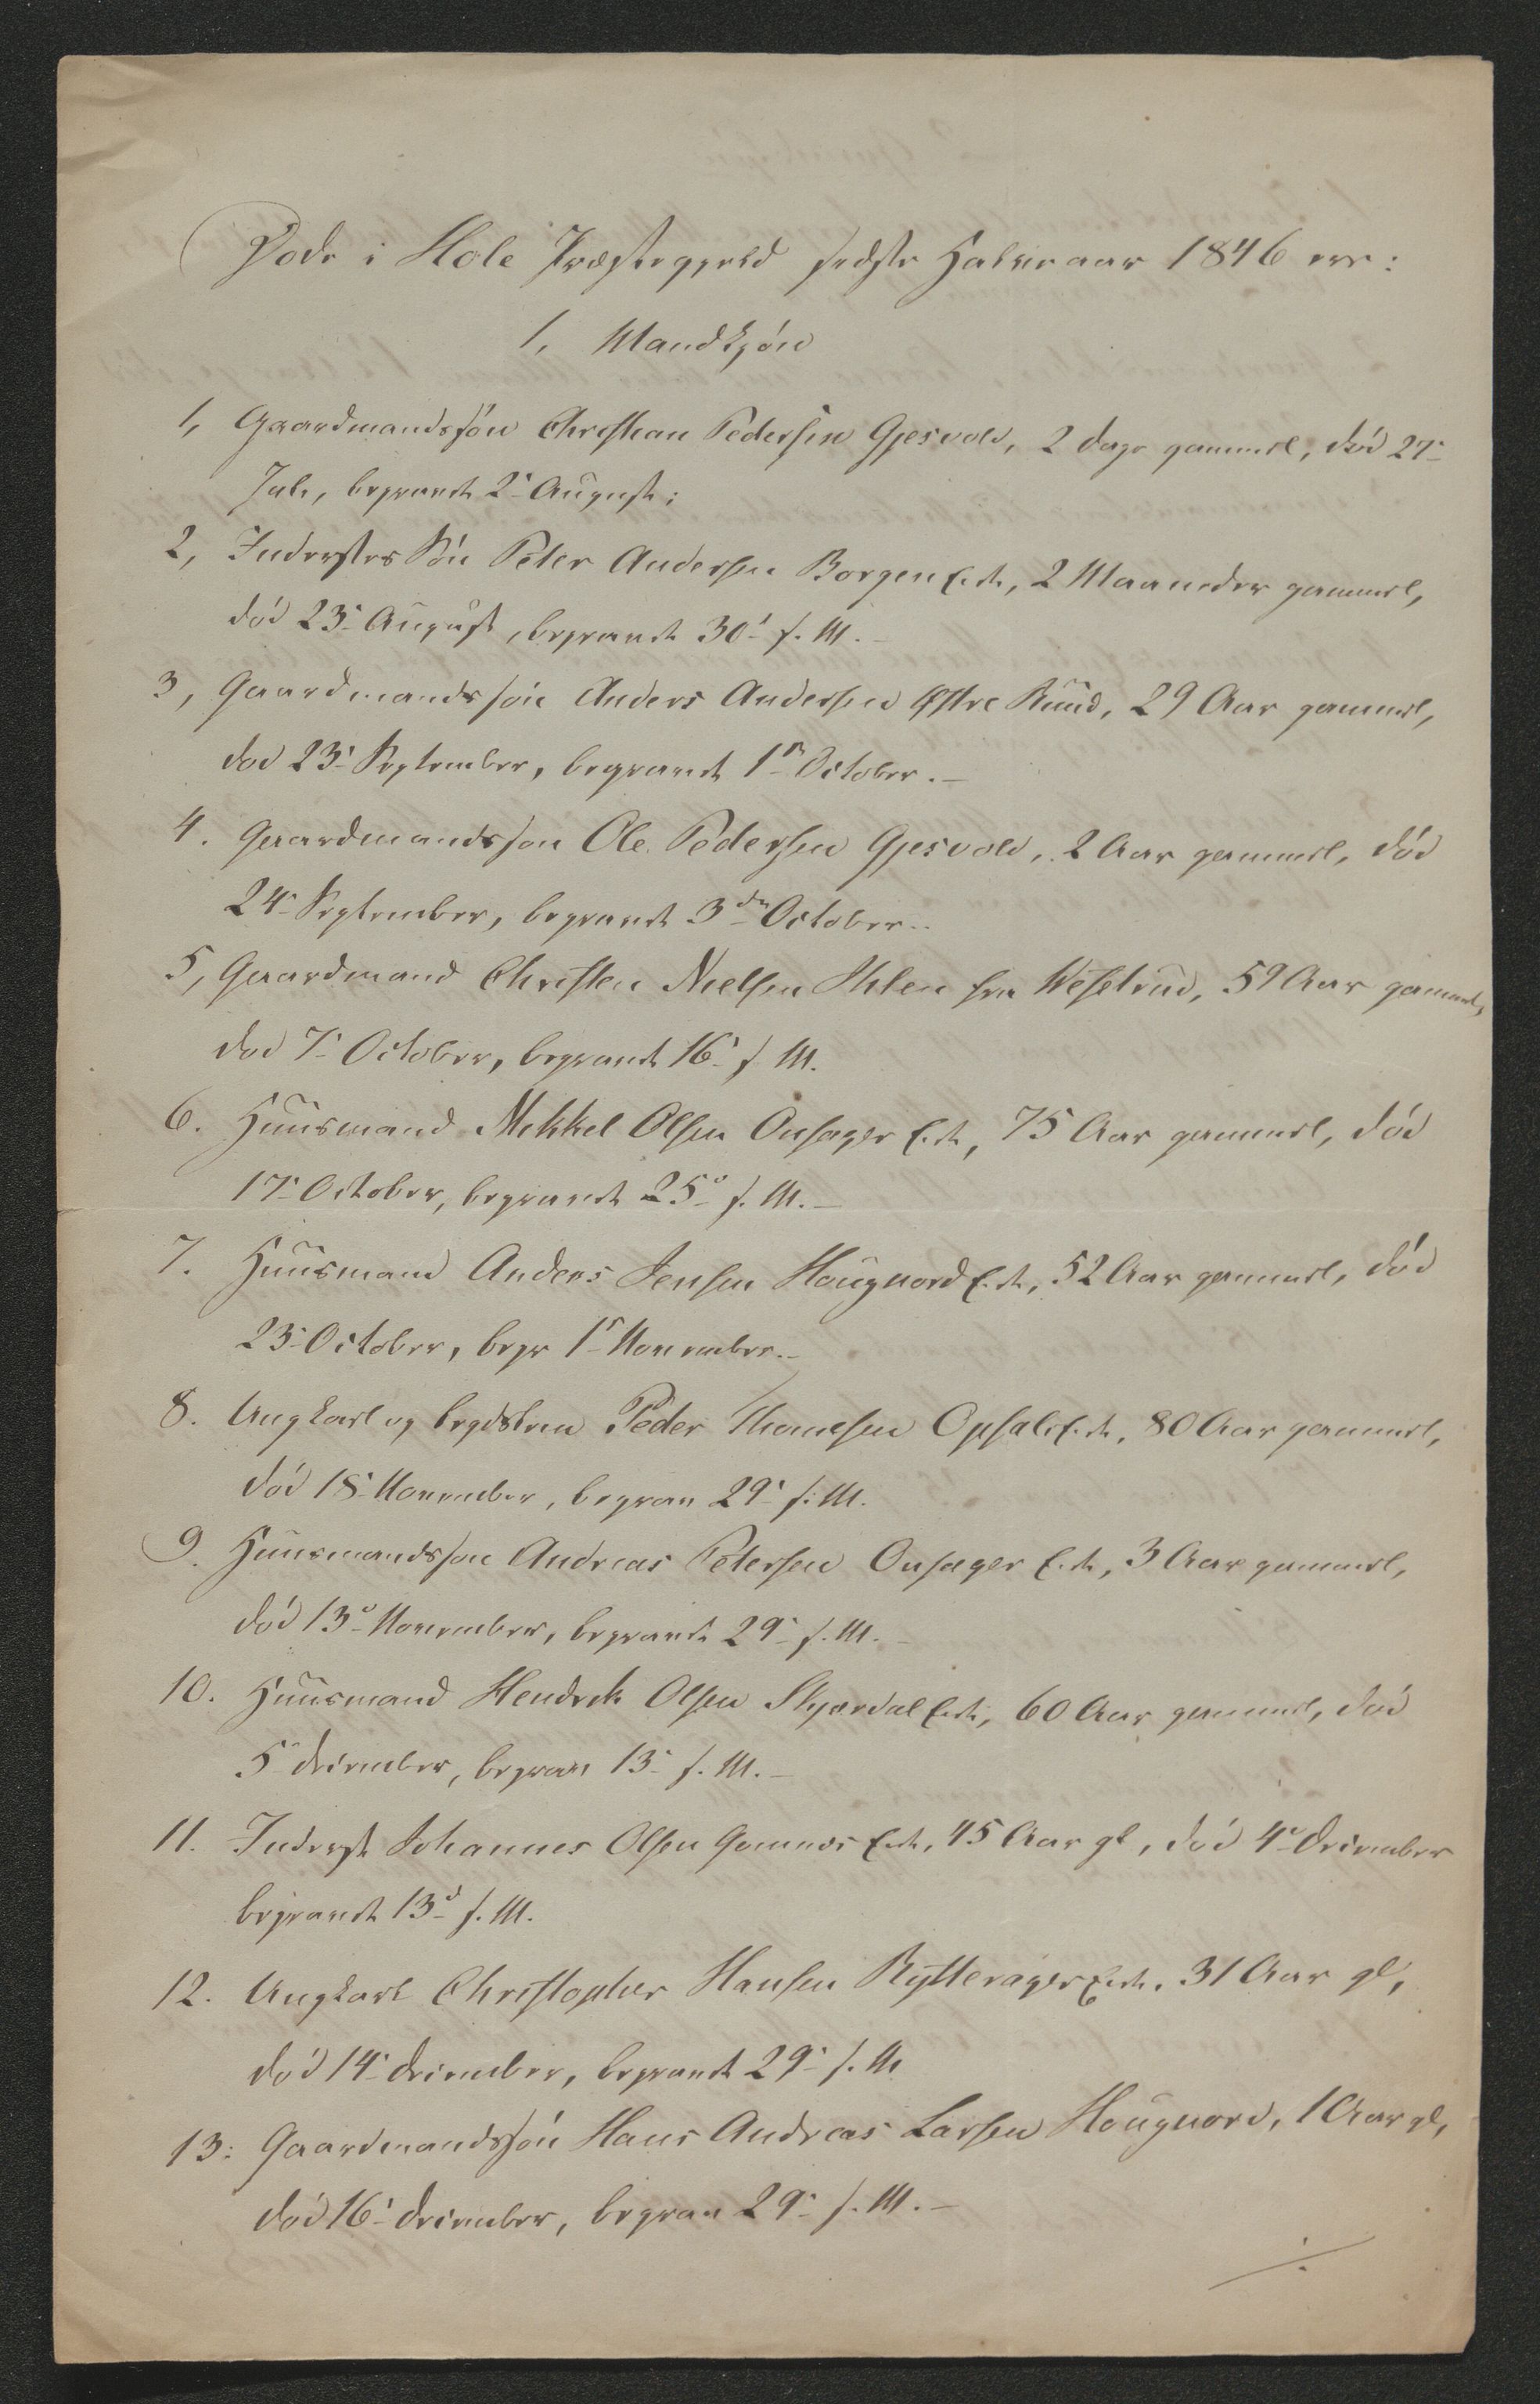 Døde i Hole Præstegjeld sidste Halvaar 1846 ere:
1, Mandkjøn
1, Gaardmandssøn Christian Pedersen Gjesvold, 2 Dage gammel, død 27de
Juli, begravet 2de August;
2, Inderstes Søn Peter Andersen Borgen Eie, 2 Maaneder gammel,
død 23de August, begravet 30te s. M. -
3, Gaardmandssøn Anders Andersen Østre Ruud, 29 Aar gammel,
død 23de September, begravet 1ste October. -
4. Gaardmandssøn Ole Pedersen Gjesvold, 2 Aar gammel, død
24de September, begravet 3die October. -
5, Gaardmand Christen Nielsen fra Wesetrud, 59 Aar gammel,
død 7de October, begravet 16de s. M.
6. Huusmand Mikkel Olsen Onsager Eie, 75 Aar gammel, død
17de October, begravet 25de s. M. -
7. Huusmand Anders Jensen Hougnord Eie, 52 Aar gammel, død
23de October, begr 1ste November. -
8. Ungkarl og Peder Thomesen Opsal Eie, 80 Aar gammel,
død 18de November, begravet 29de s. M.
9. Huusmandssøn Andreas Petersen Onsager Eie, 3 Aar gammel,
død 13de November, begravet 29de s. M. -
10. Huusmand Hendrik Olsen Skjærdal Eie, 60 Aar gammel, død
5te December, begravet 13de s. M. -
11. Inderst Johannes Olsen Gomnæs Eie, 45 Aar gl, død 4de December
begravet 13de s. M.
12. Ungkarl Christopher Hansen Rytterager Eie, 31 Aar gl,
død 14de December, begravet 29de s. M
13: Gaardmandssøn Hans Andreas Larsen Hougnord, 1 Aar gl,
død 16de December, begravet 29de s. M. -
./.